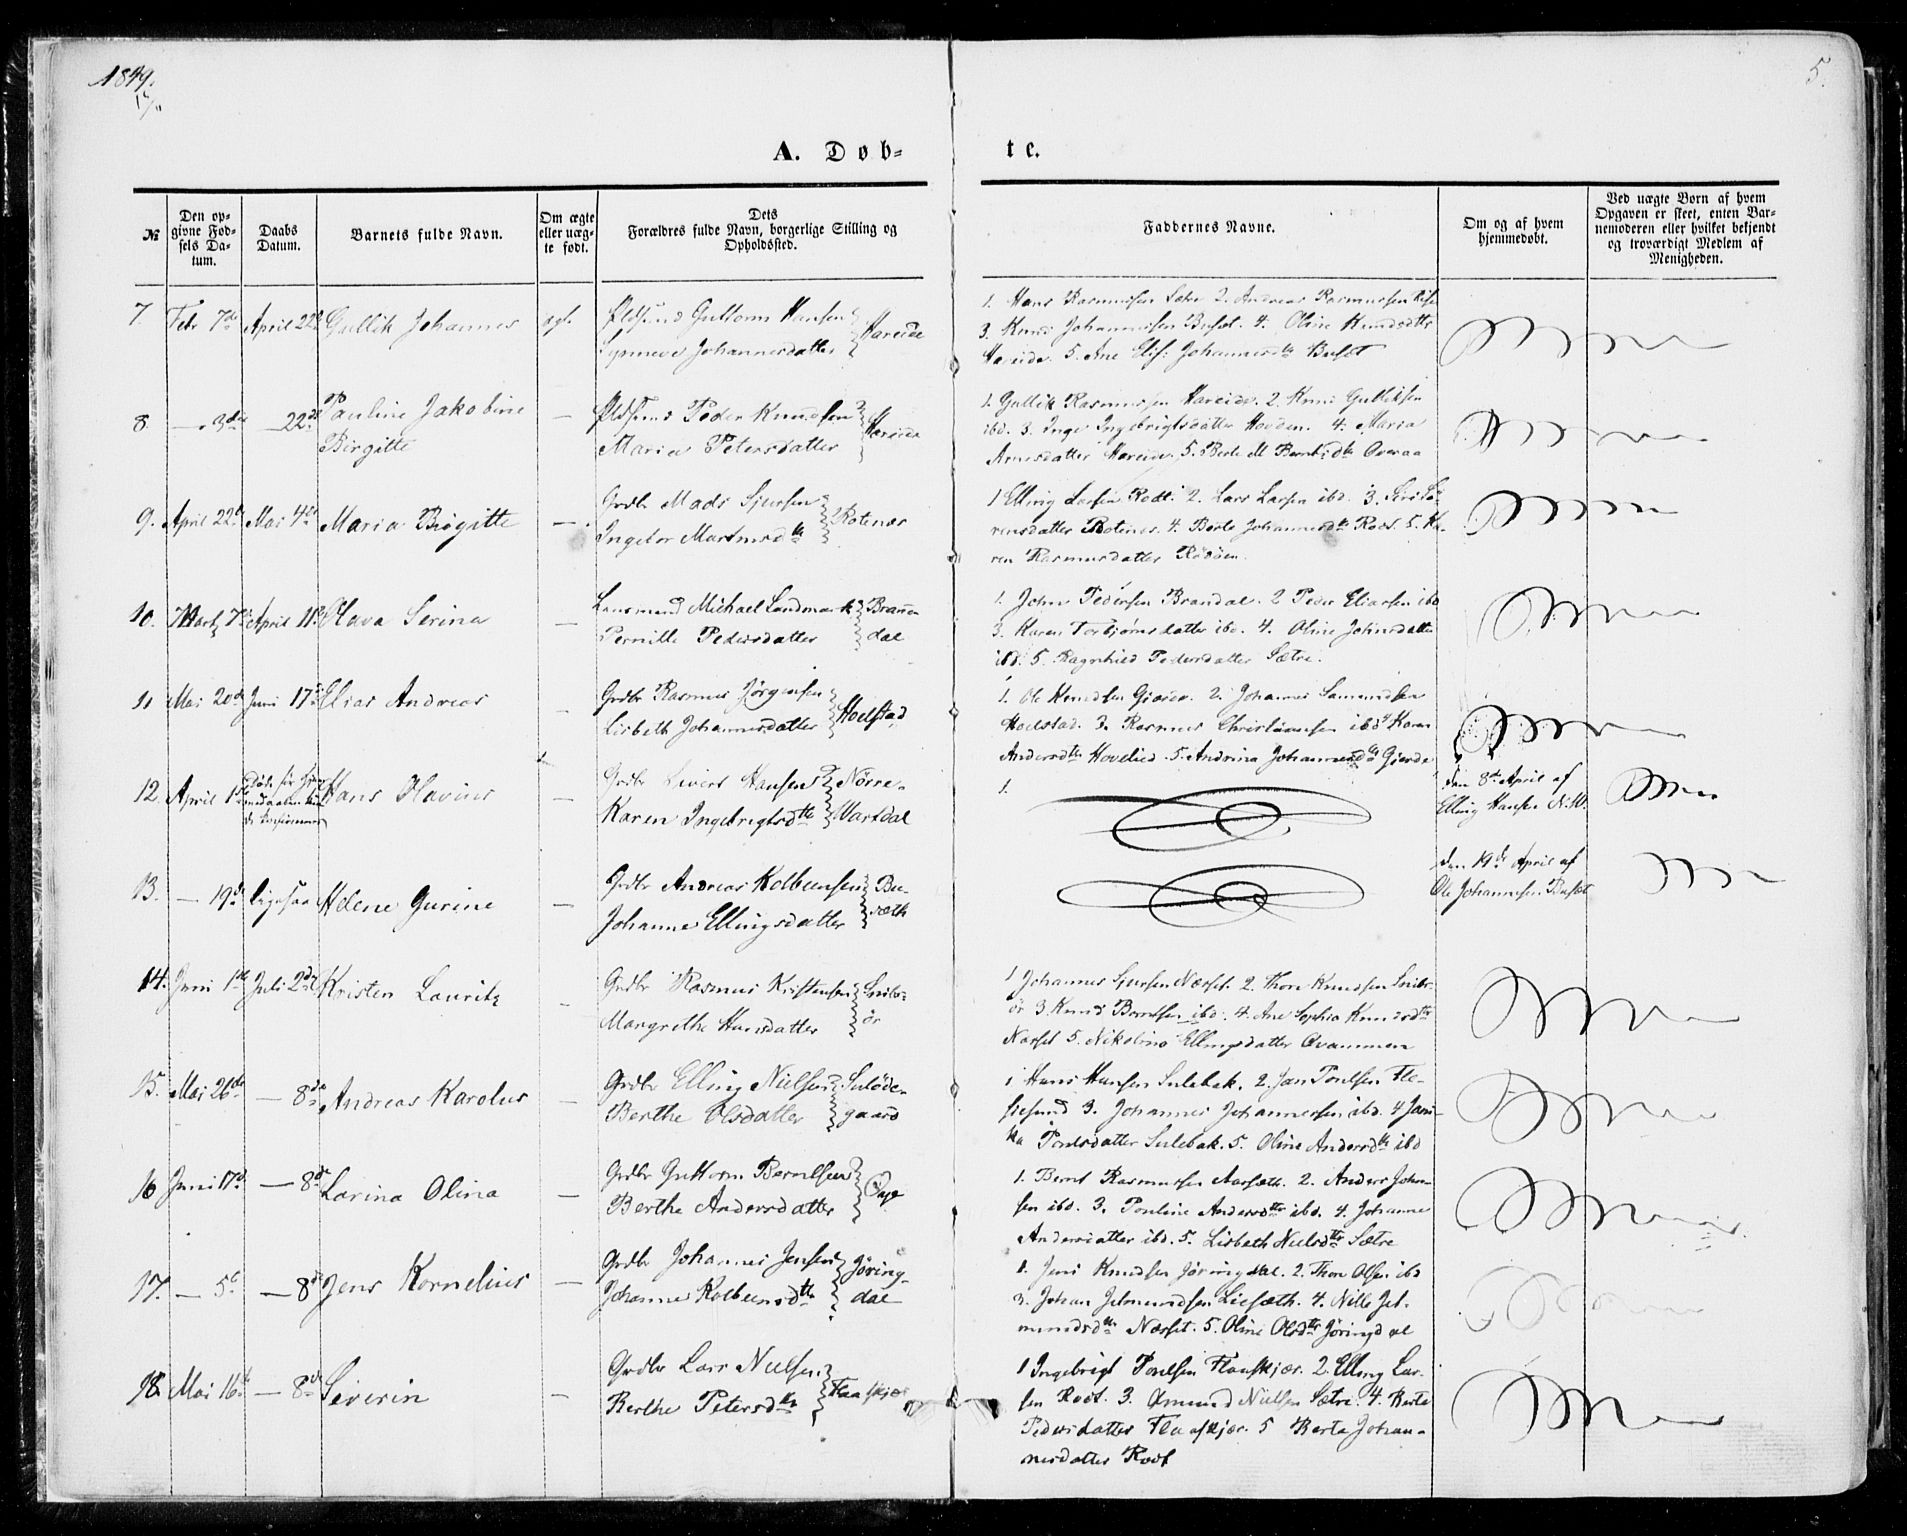 1849.
5.
A. Døb-
te.
№
Den op-
givne Fød-
sels Da-
tum.
Daabs
Datum.
Barnets fulde Navn.
Om ægte
eller uæg-
te født.
Dets
Forældres fulde Navn, borgerlige Stilling og
Opholdssted.
Faddernes Navne.
Om og af hvem
hjemmedøbt.
Ved uægte Børn af hvem
Opgaven er skeet, enten Bar-
nemoderen eller hvilket bekjendt
og troværdigt Medlem af
Menigheden.
7. Febr 7de April 22de Gullik Johannes ægt. Guttorm Hansen
Synneve Johannesdatter Hareide
1. Hans Rasmussen Sætre 2. Andreas Rasmussen
3. Knud Johannessen Busæt. 4. Oline Knudsdtr
Hareide. 5. Ane Elis: Johannesdtr Busæt
8. — 3die — 22de Pauline Jakobine
Birgitte
— Peder Knudsen
Maria Petersdatter Hareide
1. Gullik Rasmussen Hareide. 2. Knud Gulliksen
ibd. 3. Inge Ingebrigtsdatter Hovden. 4. Maria
Arnesdatter Hareide. 5. Berte M Berntsdtr Overaa
9. April 22de Mai 4de Maria Birgitte — Grdbr Mads Sjursen
Ingebor Martinsdtr Rotenæs
1 Elling Larsen Rødt. 2. Lars Larsen ibd. 3. Siri Sø-
rensdatter Rotenæs. 4. Berte Johannesdtr Rødt. 5. Ka-
ren Rasmusdatter
10. Marts 7de April 11te Olava Serina — Lensmand Michael Landmark
Pernille Pedersdatter Bran-
dal
1. John Pedersen Brandal. 2 Peder Eliassen ibd
3. Karen Torbjørnsdatter ibd. 4. Oline Johnsdatter
ibd. 5. Ragnhild Pedersdatter Sætre.
11 Mai 20de Juni 17de Elias Andreas — Grdbr Rasmus Jørgensen
Lisbeth Johannesdatter Hoelstad
1. Ole Knudsen Gjerde. 2. Johannes
Hoelstad. 3. Rasmus Christiansen ibd Karen
Andersdtr Hovelied. 5. Andrina Johannesdtr Gjerde
12. April 1ste Døde før
Hans Olavius — Grdbr Sivert Hansen
Karen Ingebrigtsdtr Nørre-
Vartdal
1.
den 8de April af
Elling Hansen
13. — 19de ligesaa Helene Gurine — Grdbr Andreas Kolbensen
Johanne Ellingsdatter Bu-
sæth
den 19de April af
Ole Johannesen Busæt
14. Juni 1ste Juli 2den Kristen Lauritz — Grdbr Rasmus Kristensen
Margrethe Hansdatter
1 Johannes Sjursen Næsset. 2. Thore Knudsen
3. Knud Berntsen ibd. 4. Ane Sophia Knudsdtr
Næsset 5. Nikoline Ellingsdatter Qvammen
15. Mai 26de — 8de Andreas Karolus — Grdbr Elling Nielsen
Berthe Olsdatter Suløde-
gaard
1 Hans Hansen Sulebak. 2. Jan Poulsen Fle-
siesund 3. Johannes Johannessen ibd. 4
Poulsdatter Sulebak. 5. Oline Andersdtr ibd
16 Juni 17de — 8de Larina Olina — Grdbr Guttorm Berntsen
Berthe Andersdatter
1. Bernt Rasmussen Aarsæth. 2. Anders John-
sen ibd. 3. Pouline Andersdtr ibd. 4. Johanne
Andersdatter ibd. 5. Lisbeth Nielsdtr Sætre
17. — 5te — 8de Jens Kornelius — Grdbr Johannes Jensen
Johanne Kolbensdtr Jøring-
dal
1. Jens Knudsen Jøringdal. 2. Thore Olsen ibd
3. Johan Jetmundsen Liesæth. 4. Nille Jet-
mundsdtr Næsset. 5. Oline Olsdtr Jøringdal
18. Mai 16de — 8de Severin — Grdbr Lars Nielsen
Berthe Petersdtr Flaaskjær
1 Ingebrigt Poulsen Flaaskjær. 2. Elling Lar-
sen Rødt. 3. Amund Nielsen Sætre. 4. Berte
Pedersdatter Flaaskjær. 5 Berte Johan-
nesdatter Rødt